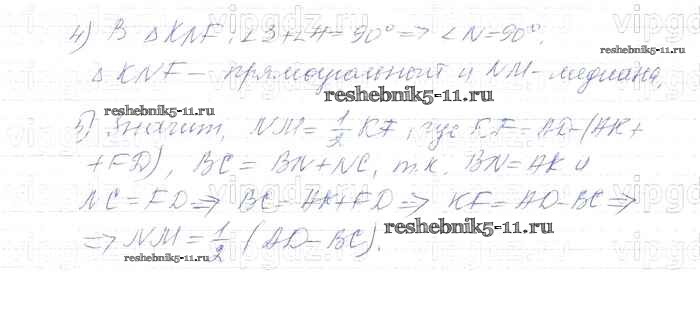 4) В △ KNF: ∠3+∠4=90° => ∠N=90°.
△ KNF – прямоугольный и NM – медиана.
reshebnik5-11.ru
reshebnik5-11.ru
5) Значит, NM = 1/2 KF, где KF = AD–(AK+
+FD), BC = BN+NC, т.к. BN=AK и
NC=FD => BC=AK+FD => KF=AD–BC =>
reshebnik5-11.ru
=> NM = 1/2 (AD–BC).
reshebnik5-11.ru